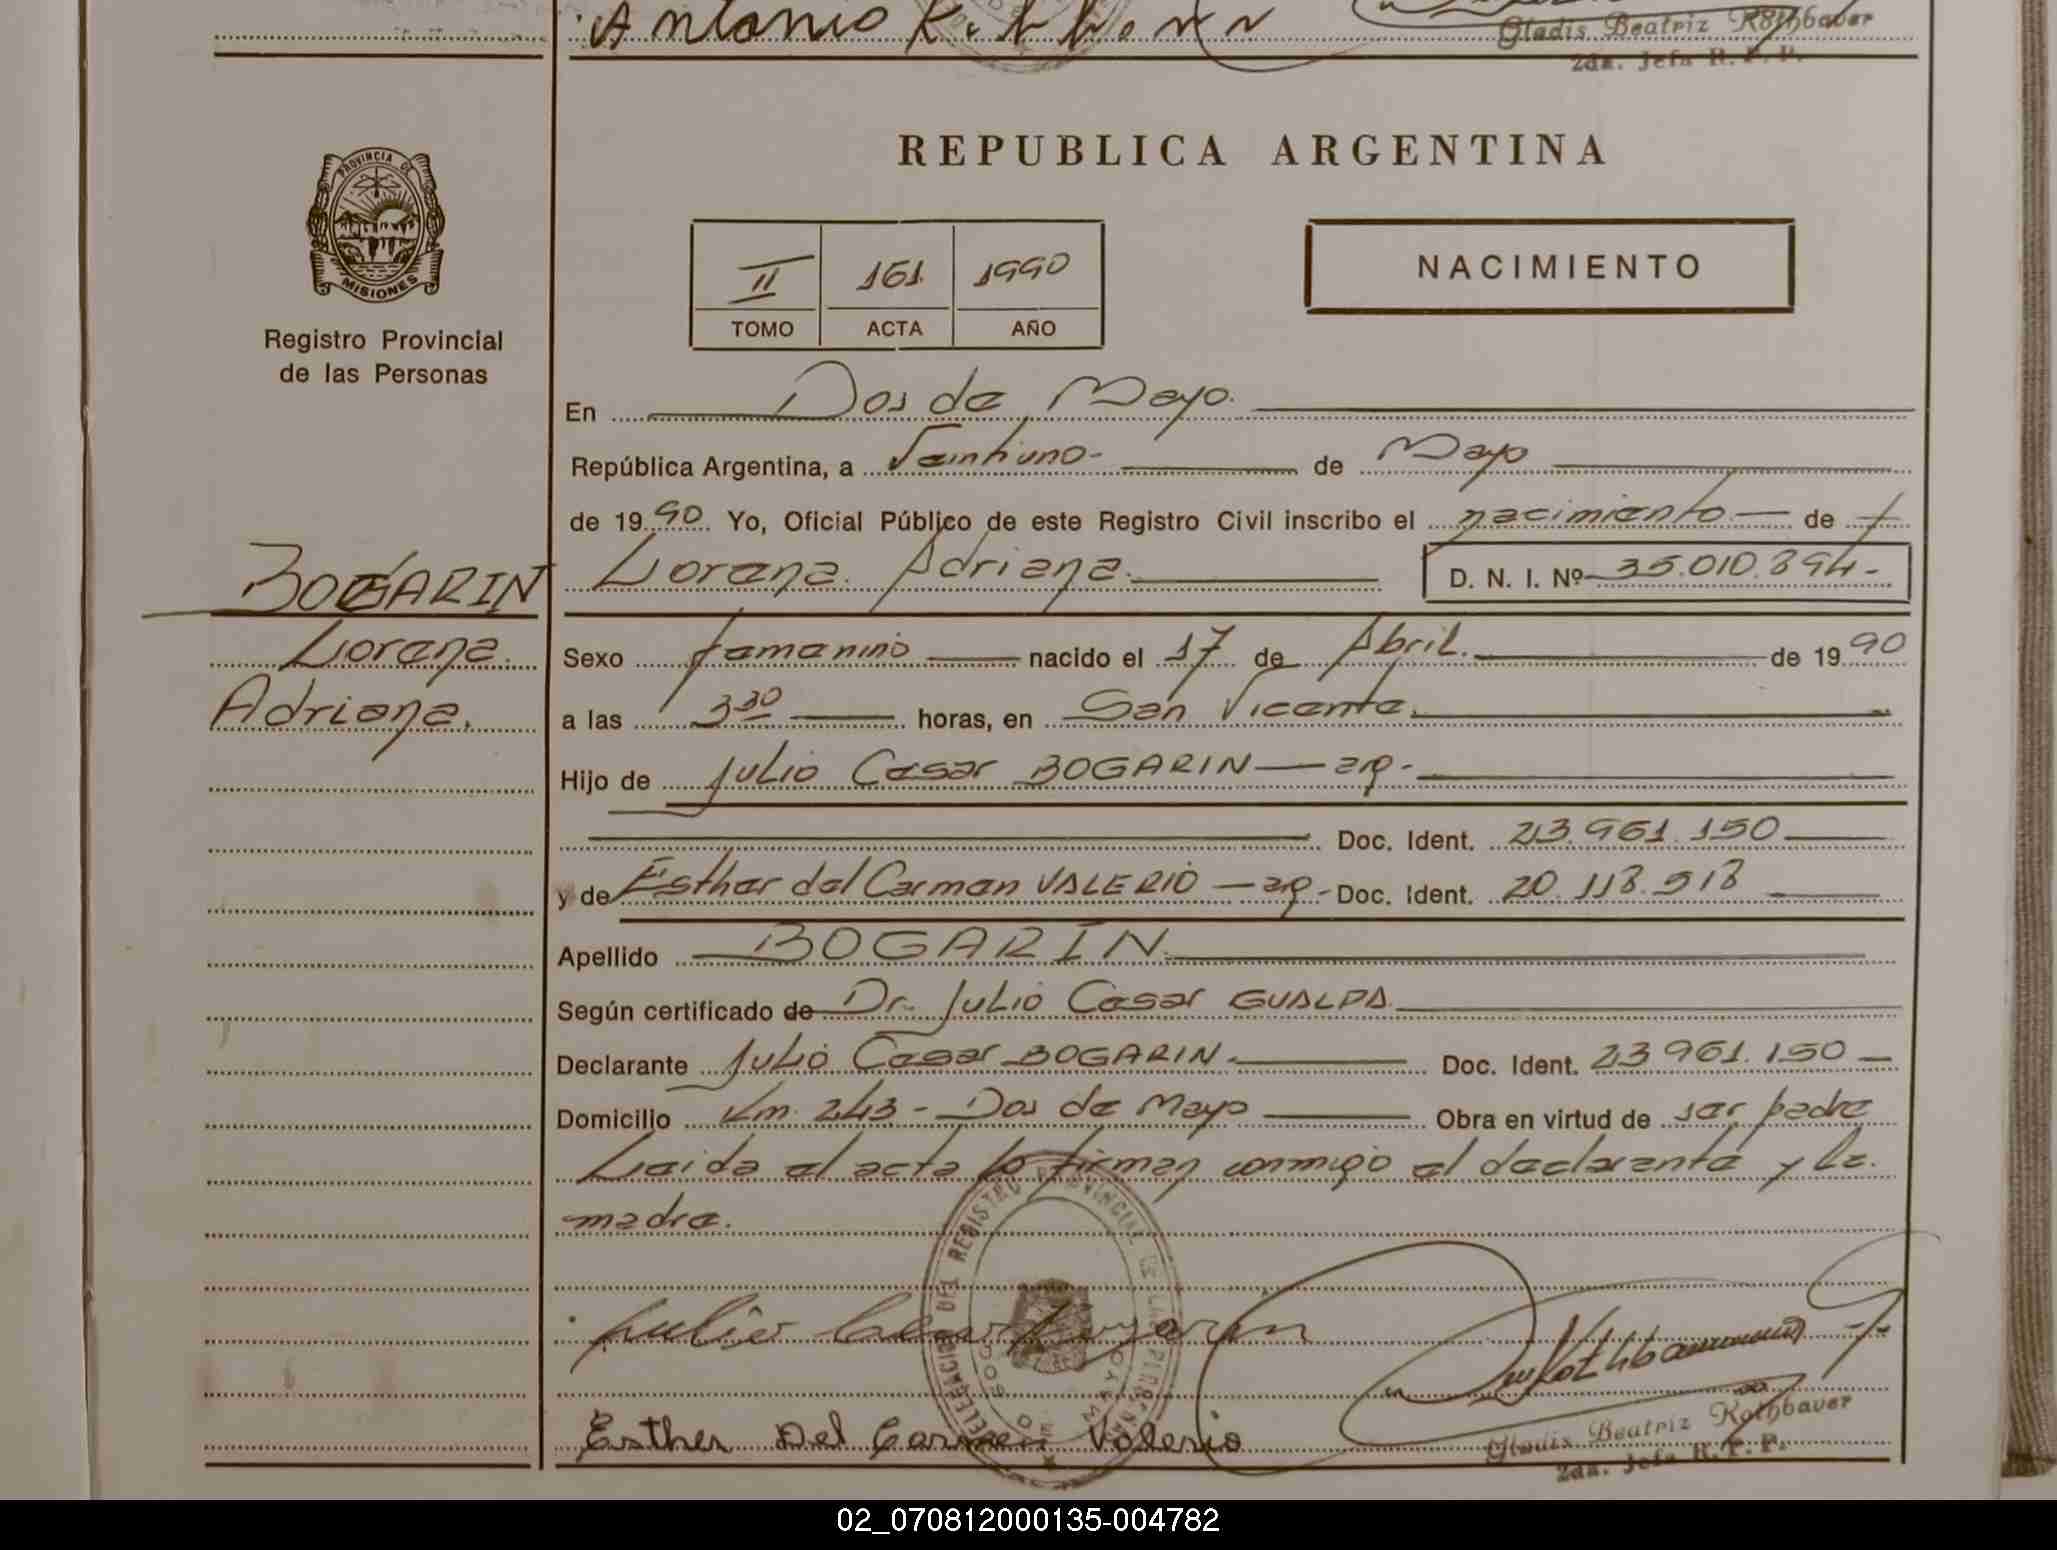 Antonio
Gladis Beatriz Rothbauer
2da. Jefa R. P. P.
PROVINCIA DE
MISIONES
Registro Provincial
de las Personas
REPUBLICA ARGENTINA
II 161 1990
TOMO ACTA AÑO
NACIMIENTO
En Dos de Mayo.
República Argentina, a Veintiuno- de Mayo
de 1990 Yo, Oficial Público de este Registro Civil inscribo el nacimiento de
BOGARIN Lorena Adriana. D. N. I. Nº 35.010.894-
Lorena
Adriana.
Sexo femenino nacido el 17 de Abril. de 1990
a las 3 30 horas, en San Vicente.
Hijo de Julio Cesar BOGARIN arg-
Doc. Ident. 23.961.150
y de Esther del Carmen VALERIO arg- Doc. Ident. 20.118.518
Apellido BOGARIN
Según certificado de Dr. Julio Cesar GUALDA
Declarante Julio Cesar BOGARIN Doc. Ident. 23961.150
Domicilio Km. 243- Dos de Mayo Obra en virtud de ser padre
Leida el acta lo firman conmigo el declarante y la
madre.
DELEGACION DEL REGISTRO PROVINCIAL DE LAS PERSONAS
DOS DE MAYO
Julio Cesar Bogarin
Esther Del Carmen Valerio
Gladis Beatriz Rothbauer
2da. Jefa R. P. P.
02_070812000135-004782